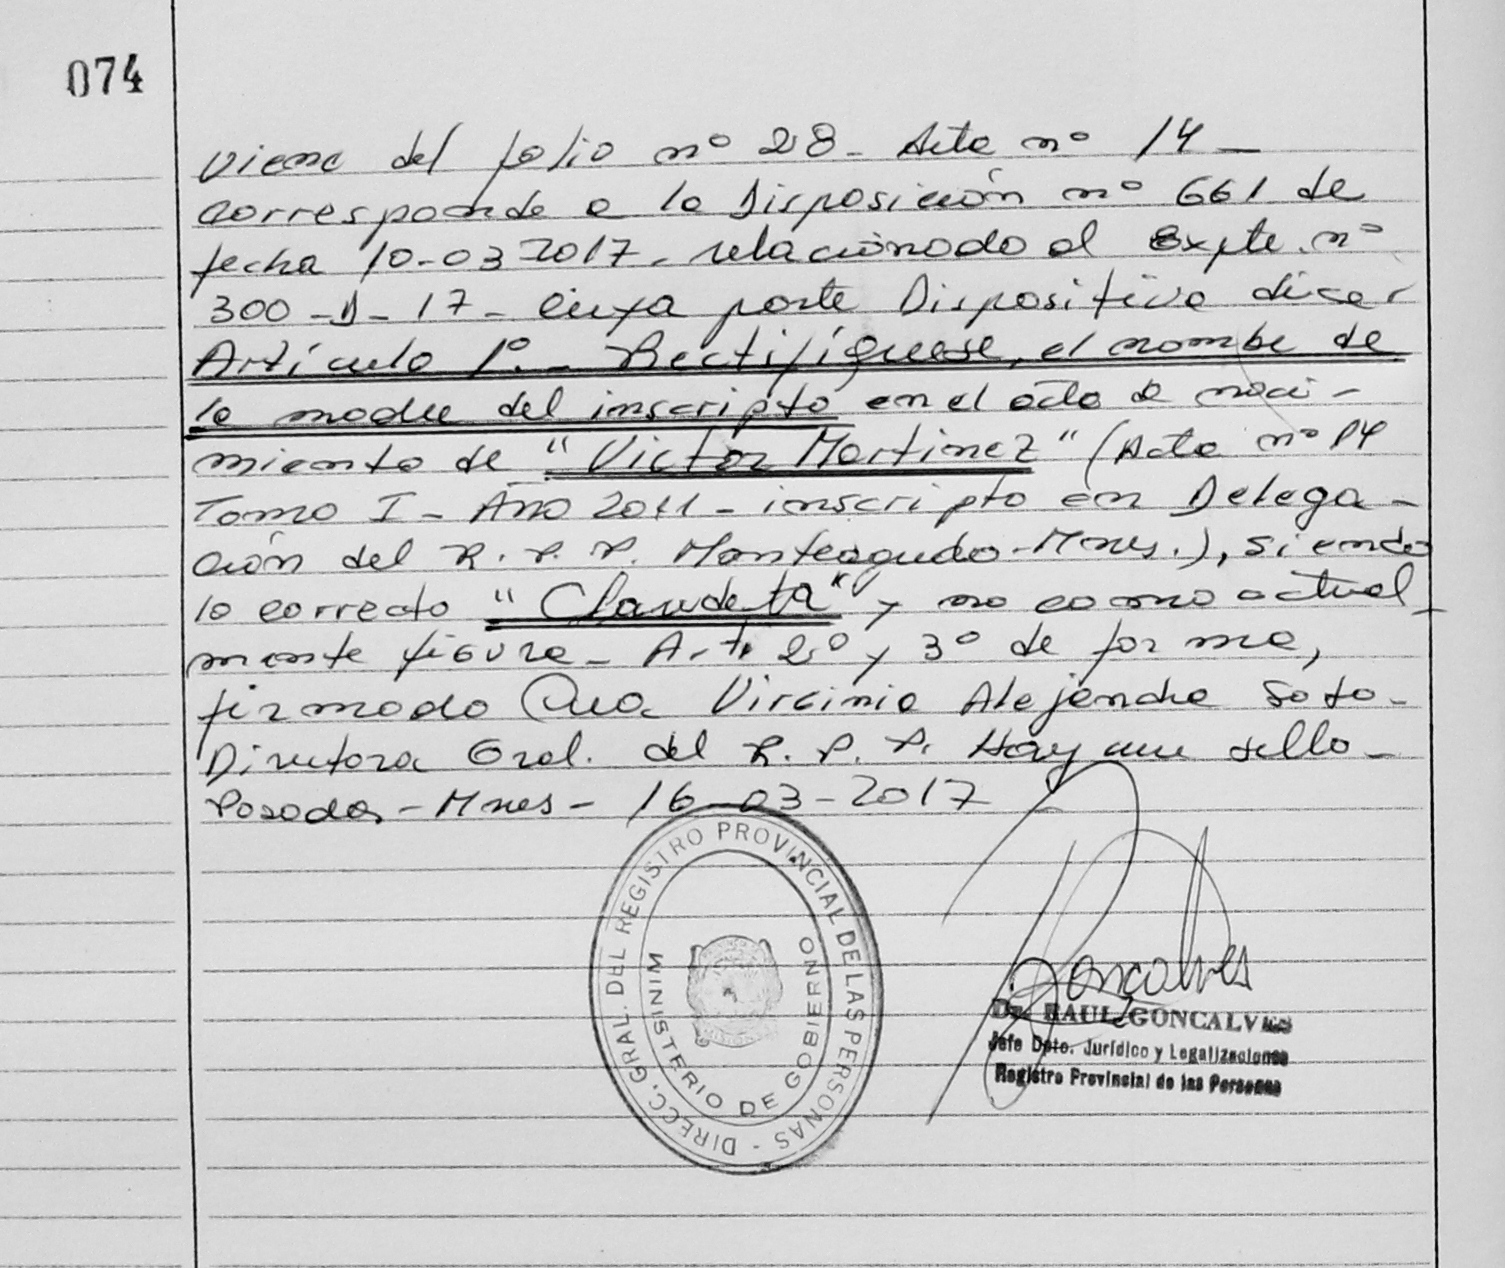 074
viene del folio nº 28 - Acta nº 14 -
corresponde a la Disposición nº 661 de
fecha 10-03-2017 - relacionado al Expte. nº
300 - D - 17 - cuya parte Dispositiva dice:
Artículo 1º - Rectifíquese, el nombre de
la madre del inscripto en el acta de naci-
miento de "Victor Martinez" (Acta nº 14
Tomo I - Año 2011 - inscripto en Delega-
ción del R. P. P. Monteagudo - Mnes.), siendo
lo correcto "Claudeta" y no como actual-
mente figura - Art. 2º y 3º de forma,
firmado Virginia Alejandra Soto -
Directora Gral. del R. P. P. Hay un sello -
Posadas - Mnes - 16-03-2017
DIRECC. GRAL. DEL REGISTRO PROVINCIAL DE LAS PERSONAS -
MINISTERIO DE GOBIERNO
Goncalves
Dr. RAUL GONCALVES
Jefe Dpto. Jurídico y Legalizaciones
Registro Provincial de las Personas